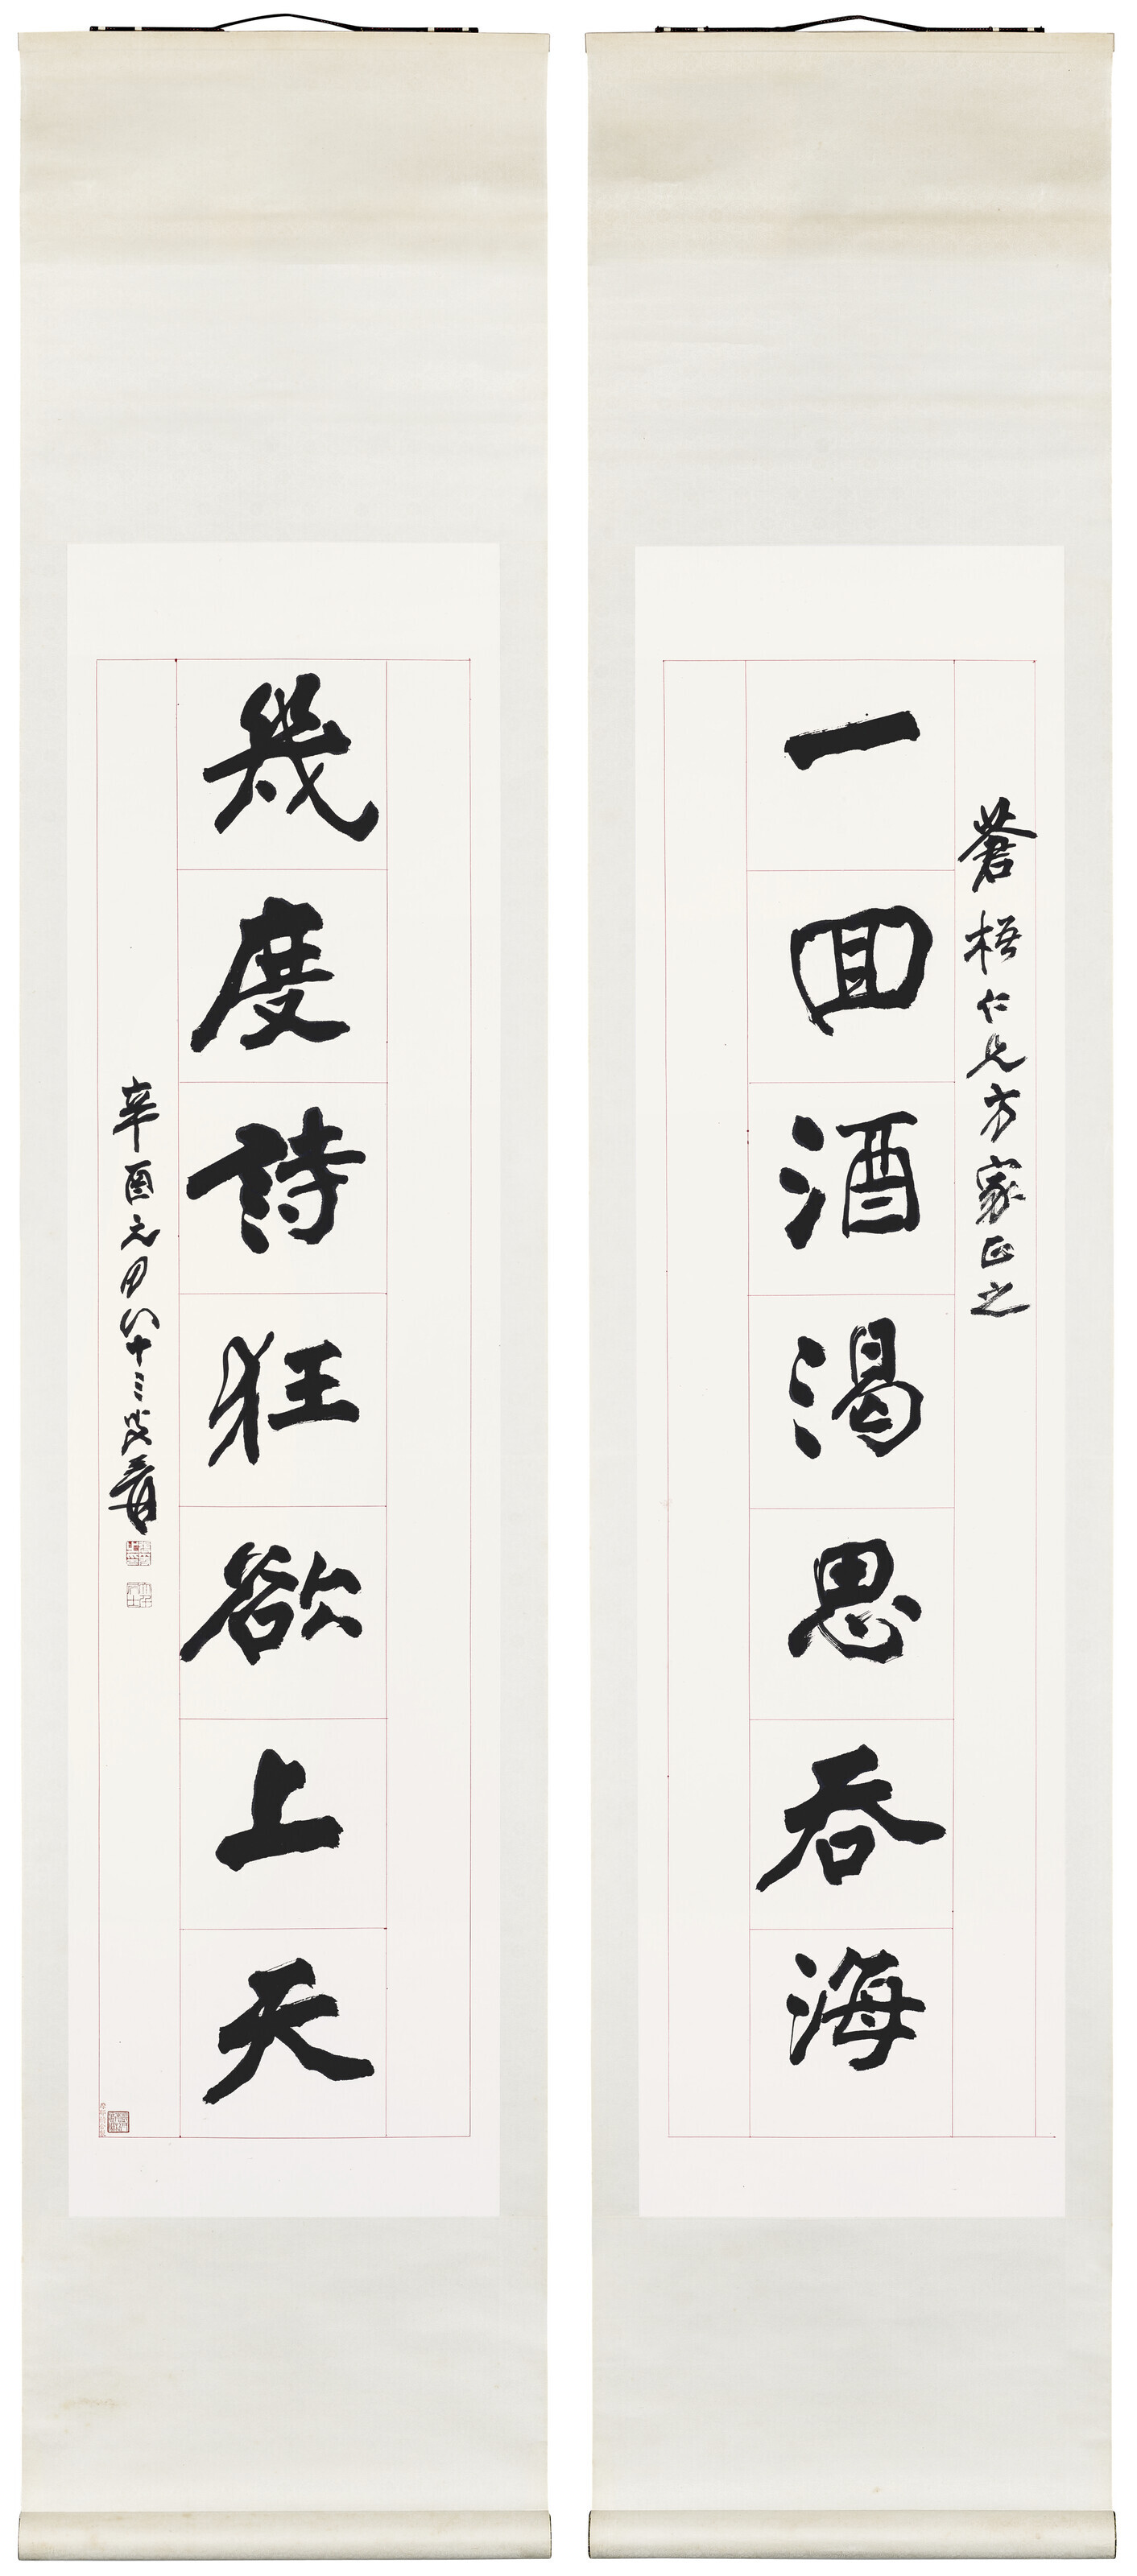 蒼梧仁兄方家正之
一回酒渴思吞海
幾度詩狂欲上天
辛酉元月八十三叟爰